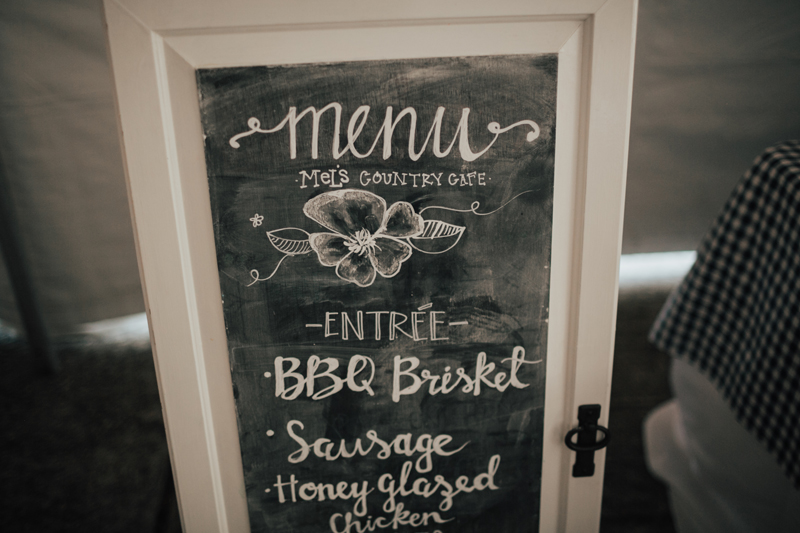 menu
·MEL'S COUNTRY CAFE·
-ENTRÉE-
·BBQ Brisket
·Sausage
·Honey glazed
Chicken